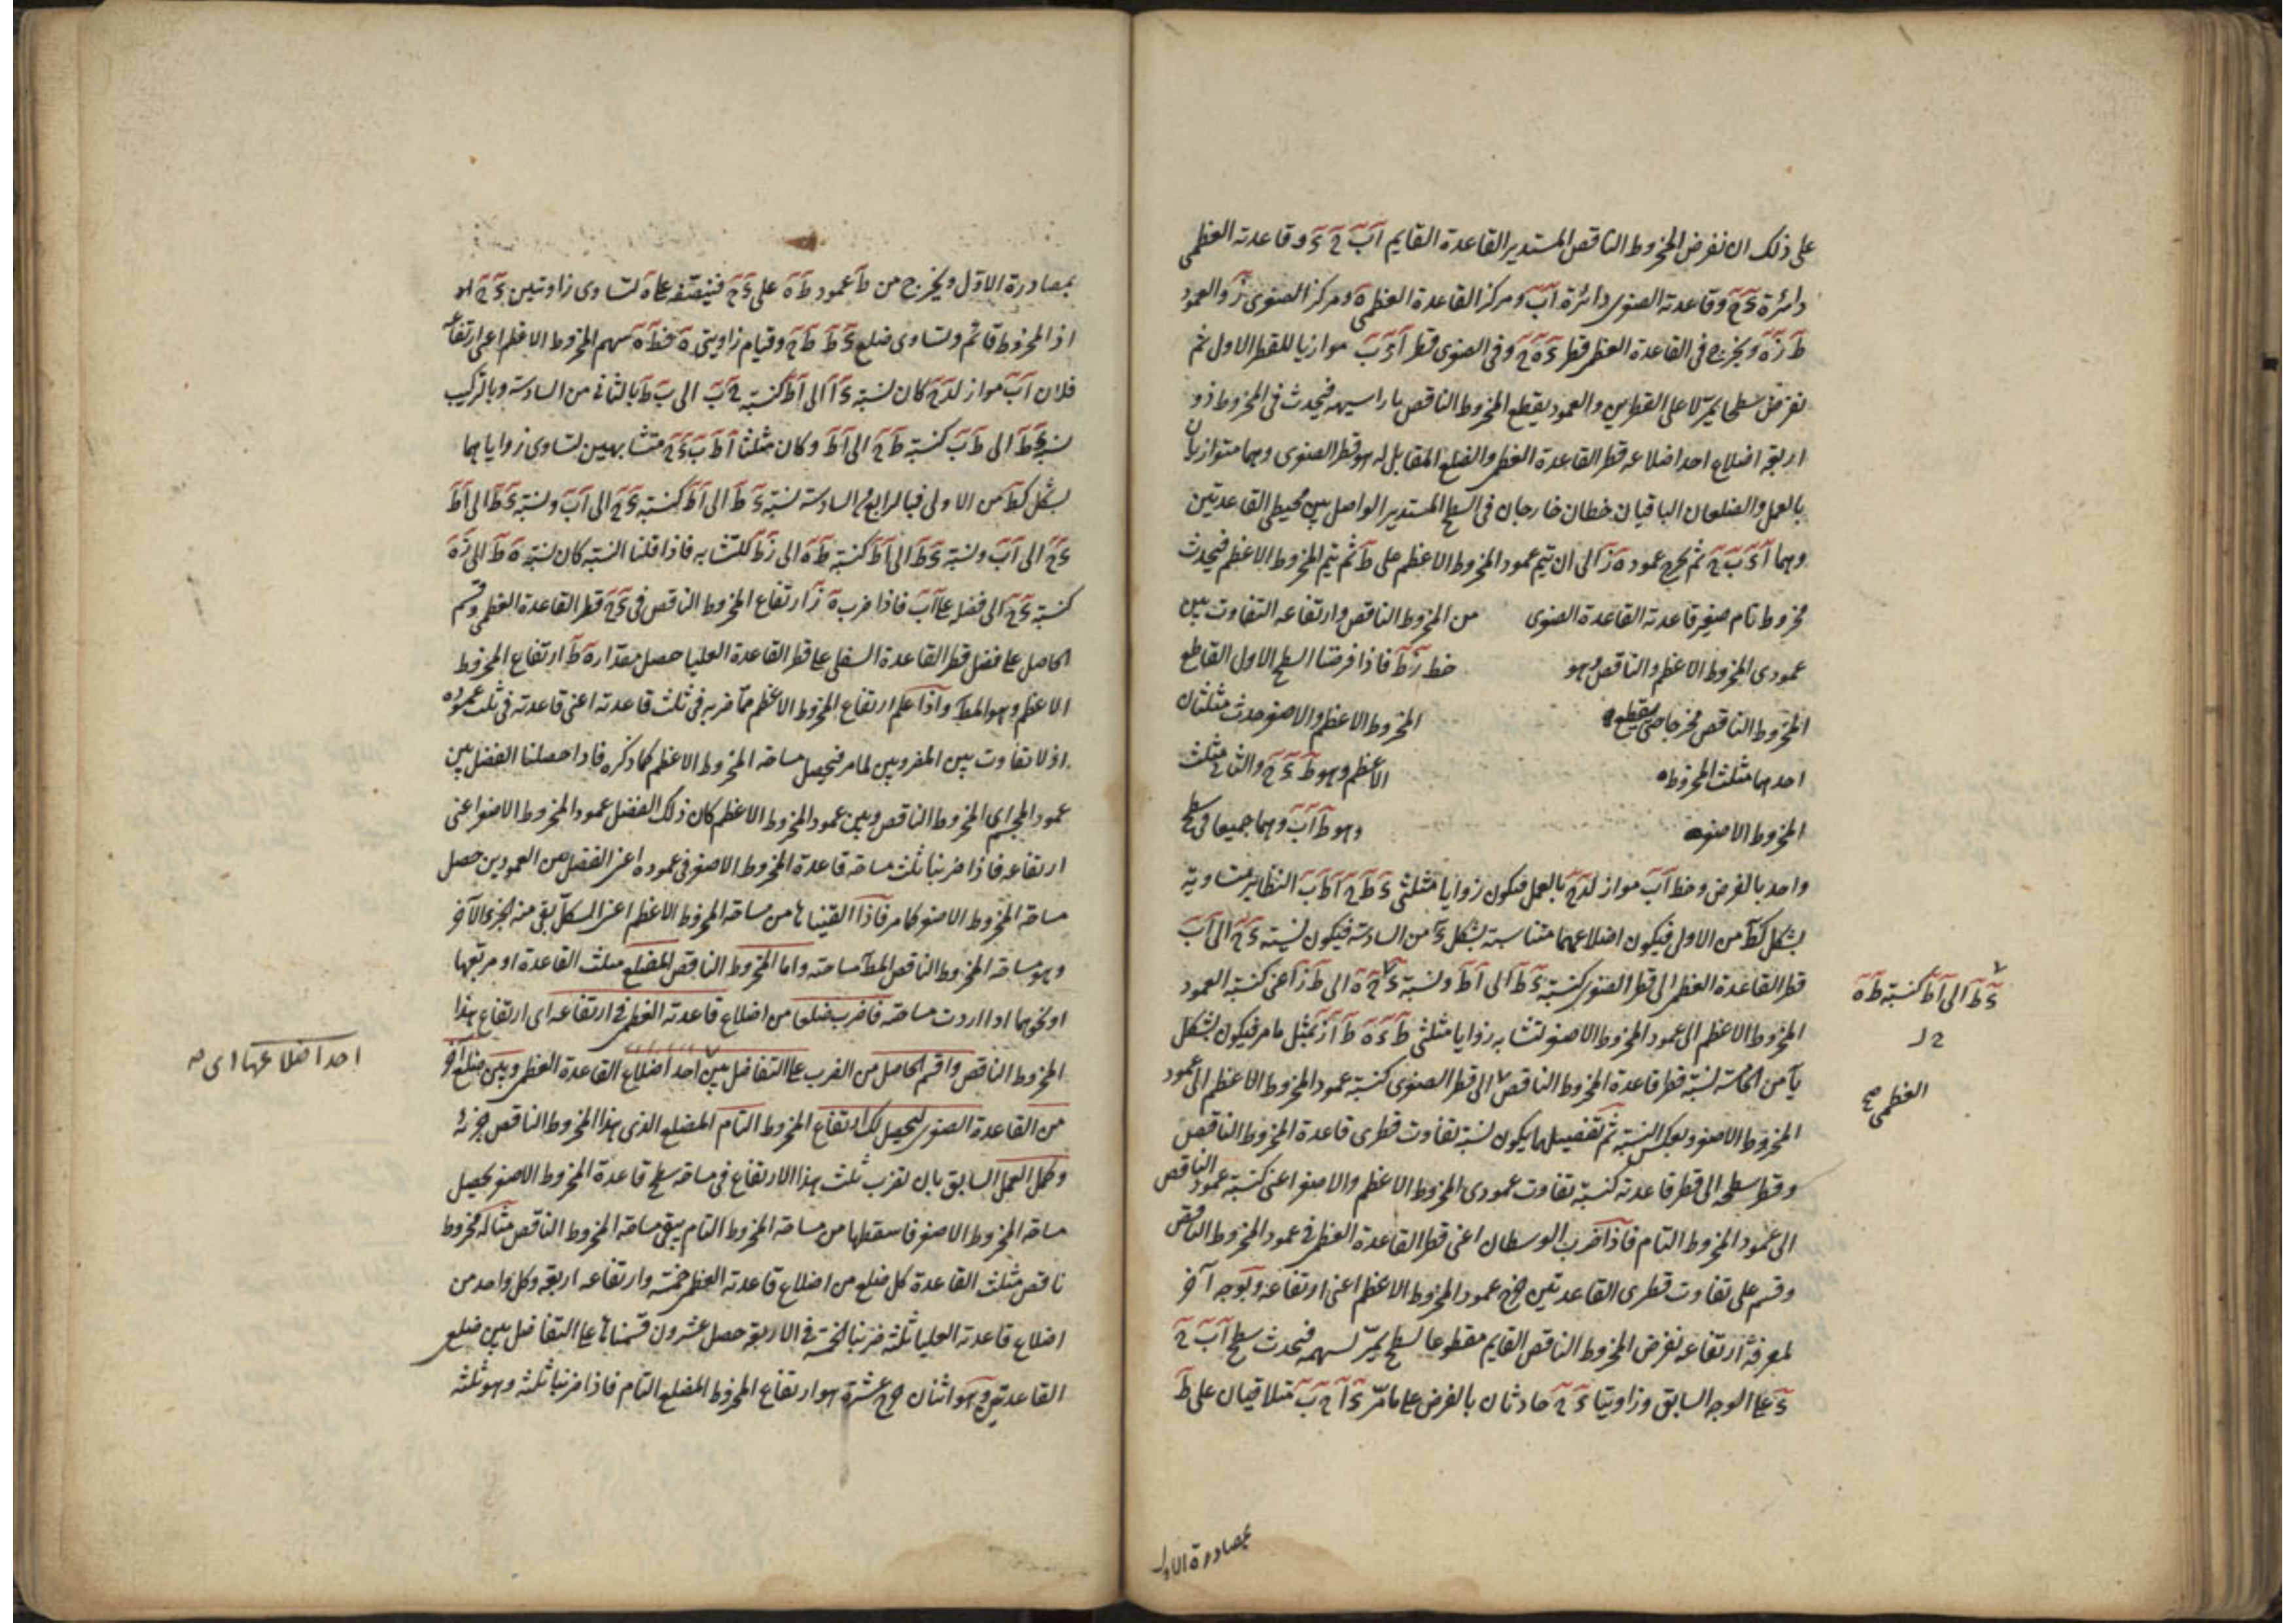 على ذلك ان نفرض المخروط الناقص المستدير القاعدة القايم اَبَ حَ دَ وقاعدته العظمى
دائرة دَحَ وقاعدته الصغرى دائرة اَبَ ومركز القاعدة العظمى هَ ومركز الصغرى زَ والعمود
طَ زَهَ ويخرج في القاعدة العظمى قطر دَهَحَ وفي الصغرى قطر اَزَبَ موازيا للقطر الاول ثم
نفرض سطحا يمر على القطرين والعمود يقطع المخروط الناقص باراسيهه فيحدث في المخروط ذو
اربعة اضلاع احد اضلاعه قطر القاعدة العظمى والضلع المقابل له هو قطر الصغرى وهما متوازيان
بالعمل والضلعان الباقيان خطان خارجان في السطح المستدير الواصل بين محيطى القاعدتين
وهما اَدَ بَحَ ثم يخرج عمود هَ زَ الى ان يتم عمود المخروط الاعظم على طَ ثم يتم المخروط الاعظم فيحدث
مخروط تام صغير قاعدته القاعدة الصغرى من المخروط الناقص وارتفاعه التفاوت بين
عمودى المخروط الاعظم والناقص وهو خط زَطَ فاذا فرضنا السطح الاول القاطع
المخروط الناقص مخرجا حتى يقطع المخروط الاعظم والاصغر حدث مثلثان
احدهما مثلث المخروط الاعظم وهو طَ دَ حَ والثاني مثلث
المخروط الاصغر وهو طَ اَبَ وهما جميعا في سطح
واحد بالفرض وخط اَبَ مواز لدَحَ بالعمل فيكون زوايا مثلثى دَ طَ حَ اَطَبَ النظاير متساوية
بشكل كطَ من الاولى فيكون اضلاعهما متناسبة بشكل دَ من السادسة فيكون نسبة دَحَ الى اَبَ
قطر القاعدة العظمى الى قطر الصغرى كنسبة دَطَ الى اَطَ ونسبة دَ حَ هَ الى طَ زَ اعنى كنسبة العمود
دَ طَ الى اَطَ كنسبة طَ هَ
المخروط الاعظم الى عمود المخروط الاصغر لتشابه زوايا مثلثى طَ دَهَ طَ اَزَ بمثل ما مر فيكون بشكل
ياَ من الخامسة نسبة قطر قاعدة المخروط الناقص الى قطر الصغرى كنسبة عمود المخروط الاعظم الى عمود
العظمى صح
المخروط الاصغر وبعكس النسبة ثم تفضيلها يكون نسبة تفاوت قطرى قاعدة المخروط الناقص
وقطر سطحه الى قطر قاعدته كنسبة تفاوت عمودى المخروط الاعظم والاصغر اعنى كنسبة عمود الناقص
الى عمود المخروط التام فاذا ضرب الوسطان اعنى قطر القاعدة العظمى في عمود المخروط الناقص
وقسم على تفاوت قطرى القاعدتين خرج عمود المخروط الاعظم اعنى ارتفاعه وبوجه آخر
لمعرفة ارتفاعه نفرض المخروط الناقص القايم مقطوعا بسطح يمر بسهمه فيحدث سطح اَبَ حَ
دَ على الوجه السابق وزاويتا دَ حَ حادثان بالفرض على ما مرّ دَ اَ حَ بَ متلاقيان على طَ
بمصادرة الاول
بمصادرة الاول ويخرج من طَ عمود طَ هَ على دَحَ فينصفه على هَ لتساوى زاويتين دَ حَ
اذ المخروط قائم وتساوى ضلعى دَ طَ طَ حَ وقيام زاويتى هَ فخط طَهَ سهم المخروط الاعظم اعنى ارتفاعه
فلان اَبَ مواز لدَحَ كان نسبة دَ اَ الى اَطَ كنسبة حَ بَ الى بَ طَ بالثاني من السادسة وبالتركيب
نسبة دَطَ الى طَ بَ كنسبة طَ حَ الى اَطَ وكان مثلثا اَ طَ بَ دَ حَ متشابهين لتساوى زواياهما
بشكل كطَ من الاولى فبالرابع من السادسة نسبة دَ طَ الى اَطَ كنسبة دَ حَ الى اَبَ ونسبة دَطَ الى اَطَ
دَحَ الى اَبَ ونسبة دَطَ الى اَطَ كنسبة طَ هَ الى زَطَ للتشابه فاذا قلنا النسبة كان نسبة هَ طَ الى زَهَ
كنسبة دَحَ الى فضله على اَبَ فاذا ضرب هَ زَ ارتفاع المخروط الناقص في دَحَ قطر القاعدة العظمى وقسم
الحاصل على فضل قطر القاعدة السفلى على قطر القاعدة العليا حصل مقدار هَ طَ ارتفاع المخروط
الاعظم وهو المط واذا علم ارتفاع المخروط الاعظم مما ضربه في ثلث قاعدته اعنى قاعدته في ثلث عموده
اذ لا تفاوت بين المضروبين لما مر فيحصل مساحة المخروط الاعظم كما ذكره فاذا حصلنا الفضل بين
عمود المجسم اى المخروط الناقص وبين عمود المخروط الاعظم كان ذلك الفضل عمود المخروط الاصغر اعنى
ارتفاعه فاذا ضربنا ثلث مساحة قاعدة المخروط الاصغر في عموده اعنى الفضل بين العمودين حصل
مساحة المخروط الاصغر كما مر فاذا القيناها من مساحة المخروط الاعظم اعنى الكل بقى منه الجزء الآخر
وهو مساحة المخروط الناقص المط مساحته واما المخروط الناقص المضلع مثلث القاعدة او مربعها
او نحوهما اذا اردت مساحته فاضرب ضلعا من اضلاع قاعدته العظمى في ارتفاعه اى ارتفاع هذا
المخروط الناقص واقسم الحاصل من الضرب على التفاضل بين احد اضلاع القاعدة العظمى وبين ضلع آخر
احد اضلاعها اى صح
من القاعدة الصغرى ليحصل لك ارتفاع المخروط التام المضلع الذى هذا المخروط الناقص جزئه
وكمل العمل السابق بان تضرب ثلث هذا الارتفاع في مساحة سطح قاعدة المخروط الاصغر يحصل
مساحة المخروط الاصغر فاسقطها من مساحة المخروط التام يبقى مساحة المخروط الناقص مثاله مخروط
ناقص مثلث القاعدة كل ضلع من اضلاع قاعدته العظمى خمسة وارتفاعه اربعة وكل واحد من
اضلاع قاعدته العليا ثلثة ضربنا الخمسة في الاربعة حصل عشرون قسمناها على التفاضل بين ضلعى
القاعدتين وهو اثنان خرج عشرة هو ارتفاع المخروط المضلع التام فاذا ضربنا ثلثه وهو ثلثة